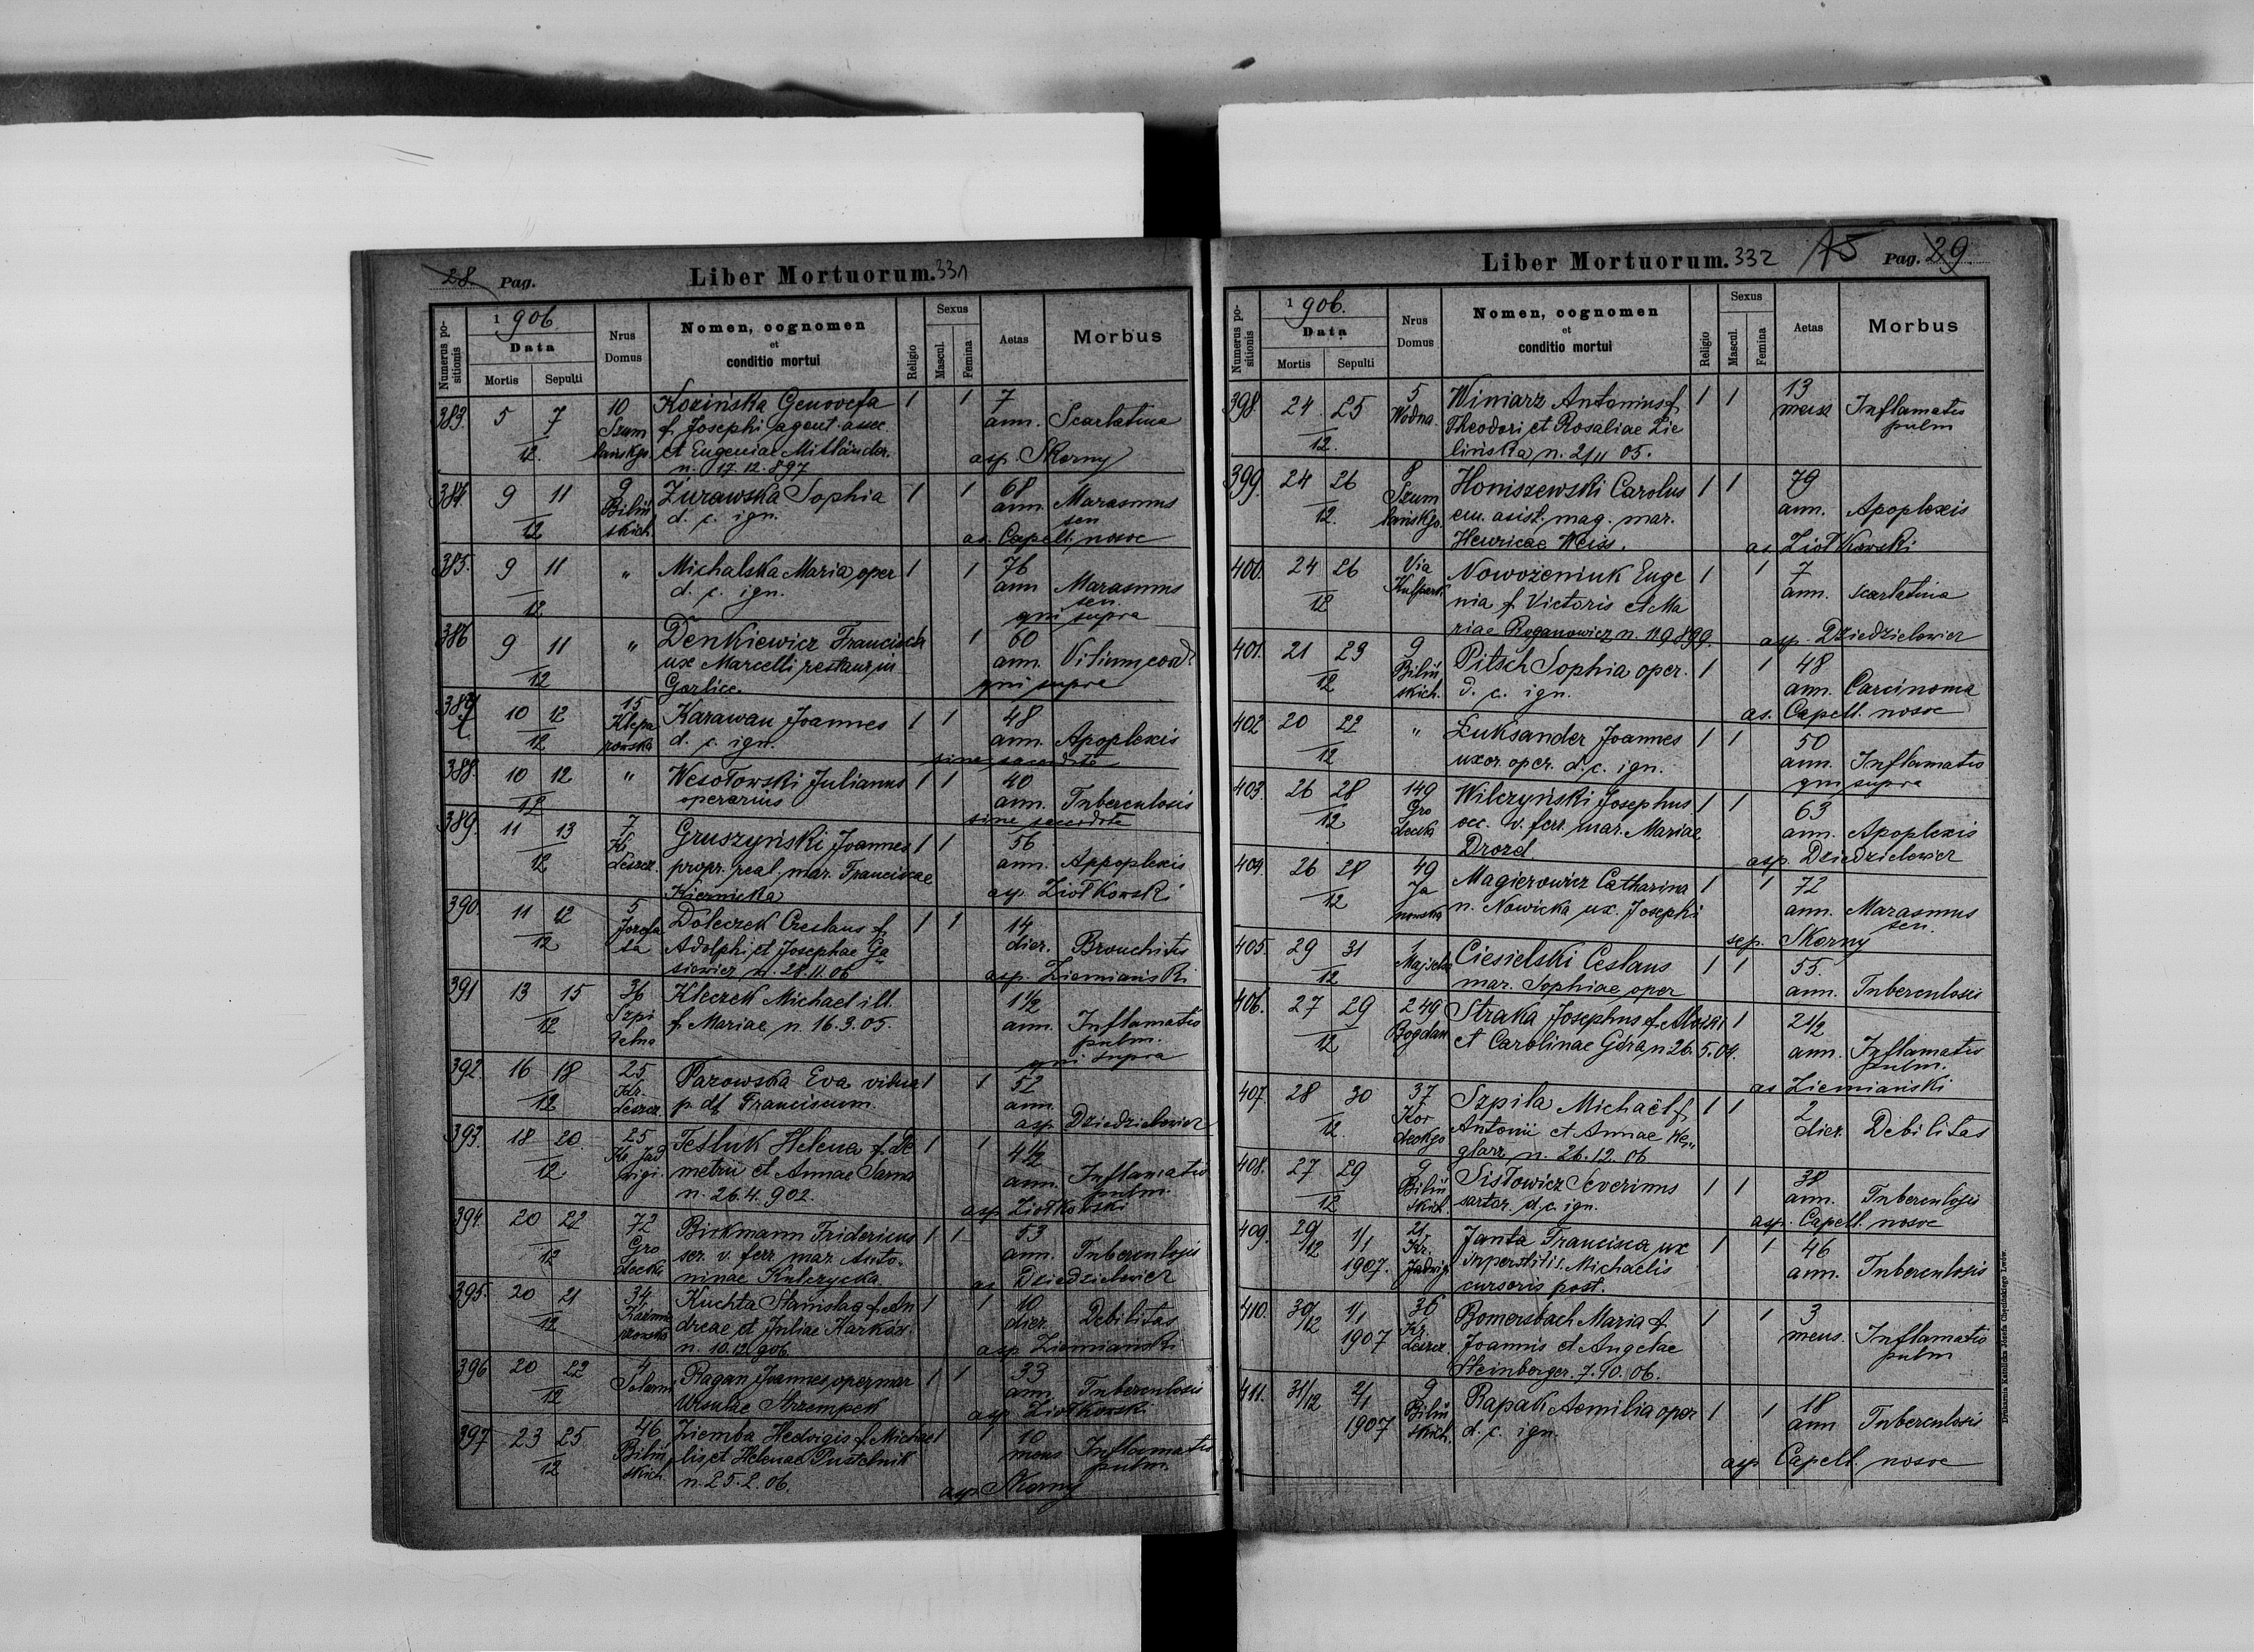 28. Pag.
Liber Mortuorum. 331
Numerus positionis
1906.
Data
Mortis
Sepulti
Nrus
Domus
Nomen, cognomen
et
conditio mortui
Religio
Sexus
Mascul.
Femina
Aetas
Morbus
383. 5 7 10 Kozińska Genovefa 1 1 7
12. Szum f. Josephi agent. assec. ann. Scarlatina
lańskgo. et Eugeniae Mitländer. asp. Skorny
n. 17.12.897
384. 9 11 9 Żurawska Sophia 1 1 68
12 Biliń d. c. ign. ann. Marasmus
skich sen
as. Capell. nosoc
385. 9 11 " Michalska Maria, oper 1 1 76
12 d. c. ign. ann Marasmus
sen.
qui supra
386 9 11 " Denkiewicz Francisca 1 60
12 ux Marcelli restaur. in ann. Vitium cord
Gorlice. qui supra
387 10 12 15 Karawan Joannes 1 1 48
12 Klepa d. c. ign. ann. Apoplexis
rowska sine sacerdote
388. 10 12 " Wesołowski Julianus 1 1 40
12 operarius ann. Tuberculosis
sine sacerdote
389. 11 13 7 Gruszyński Joannes 1 1 56
12 Kr. propr. real. mar. Franciscae ann. Appoplexis
Leszcz. Kiernicka asp. Ziołkowski
390. 11 12 5 Doleczek Czeslaus f. 1 1 14
12 Jozefa Adolphi et Josephae Ga dier. Bronchitis
ta siewicz n. 28.11.06 asp. Ziemiański
391 13 15 36 Kleczek Michael ill. 1½
12 Szpi f. Mariae n. 16.9.05. ann. Inflamatis
talna pulm.
qui supra
392. 16 18 25 Parowska Eva vidua 1 1 52
12 Kr. p. df Franciscum. ann.
Leszcz. asp. Dziedzielewicz
393. 18 20 25 Tesluk Helena f. De 1 1 4½
12 Kr. Jad metrii et Annae Sarna ann. Inflamatis
wigi. n. 26.4.902. pulm.
asp Ziołkowski
394. 20 22 72 Birkmann Fridericus 1 1 53
12 Gro ser. v. ferr mar. Anto- ann. Tuberculosis
decka ninae Kulczycka. as Dziedzielewicz
395. 20 21 34 Kuchta Stanislaa f. An 1 1 10
12 Kazimi dreae et Juliae dier. Debilitas
rzowska n. 10.12.906 asp Ziemiański
396 20 22 4 Ragan Joannes, oper, mar 1 1 33
Solarni Ursulae Strzempek ann Tuberculosis
asp Ziołkowski
397 23 25 46 Ziemba Hedvigis f. Michae 1 10
12 Biliń lis et Helenae Pustelnik mens Inflamatis
skich n. 25.2.06. pulm.
asp. Skorny
Liber Mortuorum. 332
15
Pag. 29.
Numerus positionis
1906.
Data
Mortis
Sepulti
Nrus
Domus
Nomen, cognomen
et
conditio mortui
Religio
Sexus
Mascul.
Femina
Aetas
Morbus
398. 24 25 5 Winiarz Antonius f. 1 1 13
12. Wodna. Theodori et Rosaliae Zie mens Inflamatis
lińska, n. 2/11 05. pulm
399. 24 26 8 Honiszewski Carolus 1 1 79
12. Szum em. asist. mag. mar. ann. Apoplexis
lańskgo. Henricae Weiss. as. Ziołkowski
400. 24 26 Via Nowożeniuk Euge 1 1 7
12 Kulpark. nia f Victoris et Ma ann. scarlatina
riae Roganowicz n. 11.9.899. asp. Dziedzielewicz
401. 21 23 9 Pitsch Sophia oper. 1 1 48
12 Biliń d. c. ign. ann. Carcinoma
skich. as. Capell. nosoc
402 20 22 " Łuksander Joannes 1 1 50
12 uxor. oper. d. c. ign. ann. Inflamatis
qui supra
403. 26 28 149 Wilczyński Josephus 1 1 63
12 Gro occ. v. ferr. mar. Mariae ann. Apoplexis
decka Drozd. asp. Dziedzielewicz
404. 26 28 49 Magierowicz Catharina 1 1 72
12 Ja n. Nowicka ux. Josephi ann. Marasmus
nowska sen.
sep. Skorny
405. 29 31 1 Ciesielski Ceslaus 1 1 55.
12 mar. Sophiae oper ann. Tuberculosis
406. 27 29 249 Straka Josephus f. Aloisii 1 2½
12 Bogdan et Carolinae Góra n 26.5.04. ann. Inflamatis
pulm.
as Ziemiański
407. 28 30 37 Szpila Michaël f. 1 1 2
12. Kor Antonii et Annae We„ dier. Debilitas
deckgo glarz n. 26.12.06
408. 27 29 9 Sisłowicz Severinus 1 1 38
12 Biliń sartor. d. c. ign. ann. Tuberculosis
skich. asp. Capell. nosoc
409. 29/12 1/1 21 Janta Francisca ux 1 1 46
1907. Kr. superstitis Michaelis ann. Tuberculosis
Jadwigi cursoris post.
410. 30/12 1/1 36 Bomersbach Maria f. 1 1 3
1907 Kr. Joannis et Angelae mens. Inflamatis
Leszcz. Steinberger. 7.10.06. pulm
411. 31/12 2/1 9 Rapak Aemilia oper 1 1 18
1907 Biliń d. c. ign. ann Tuberculosis
skich. asp Capell. nosoc
Drukarnia Katolicka Józefa Chęcińskiego Lwów.